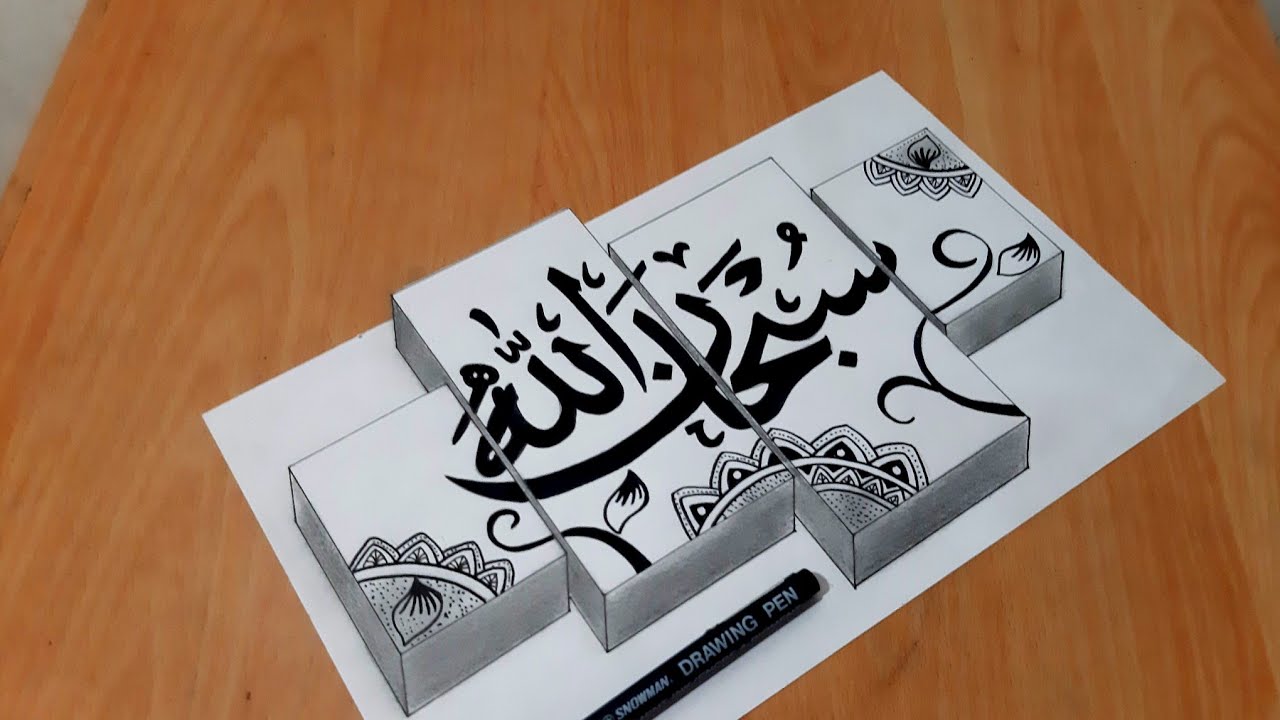 سُبْحَانَ اللّٰهِ
SNOWMAN. DRAWING PEN